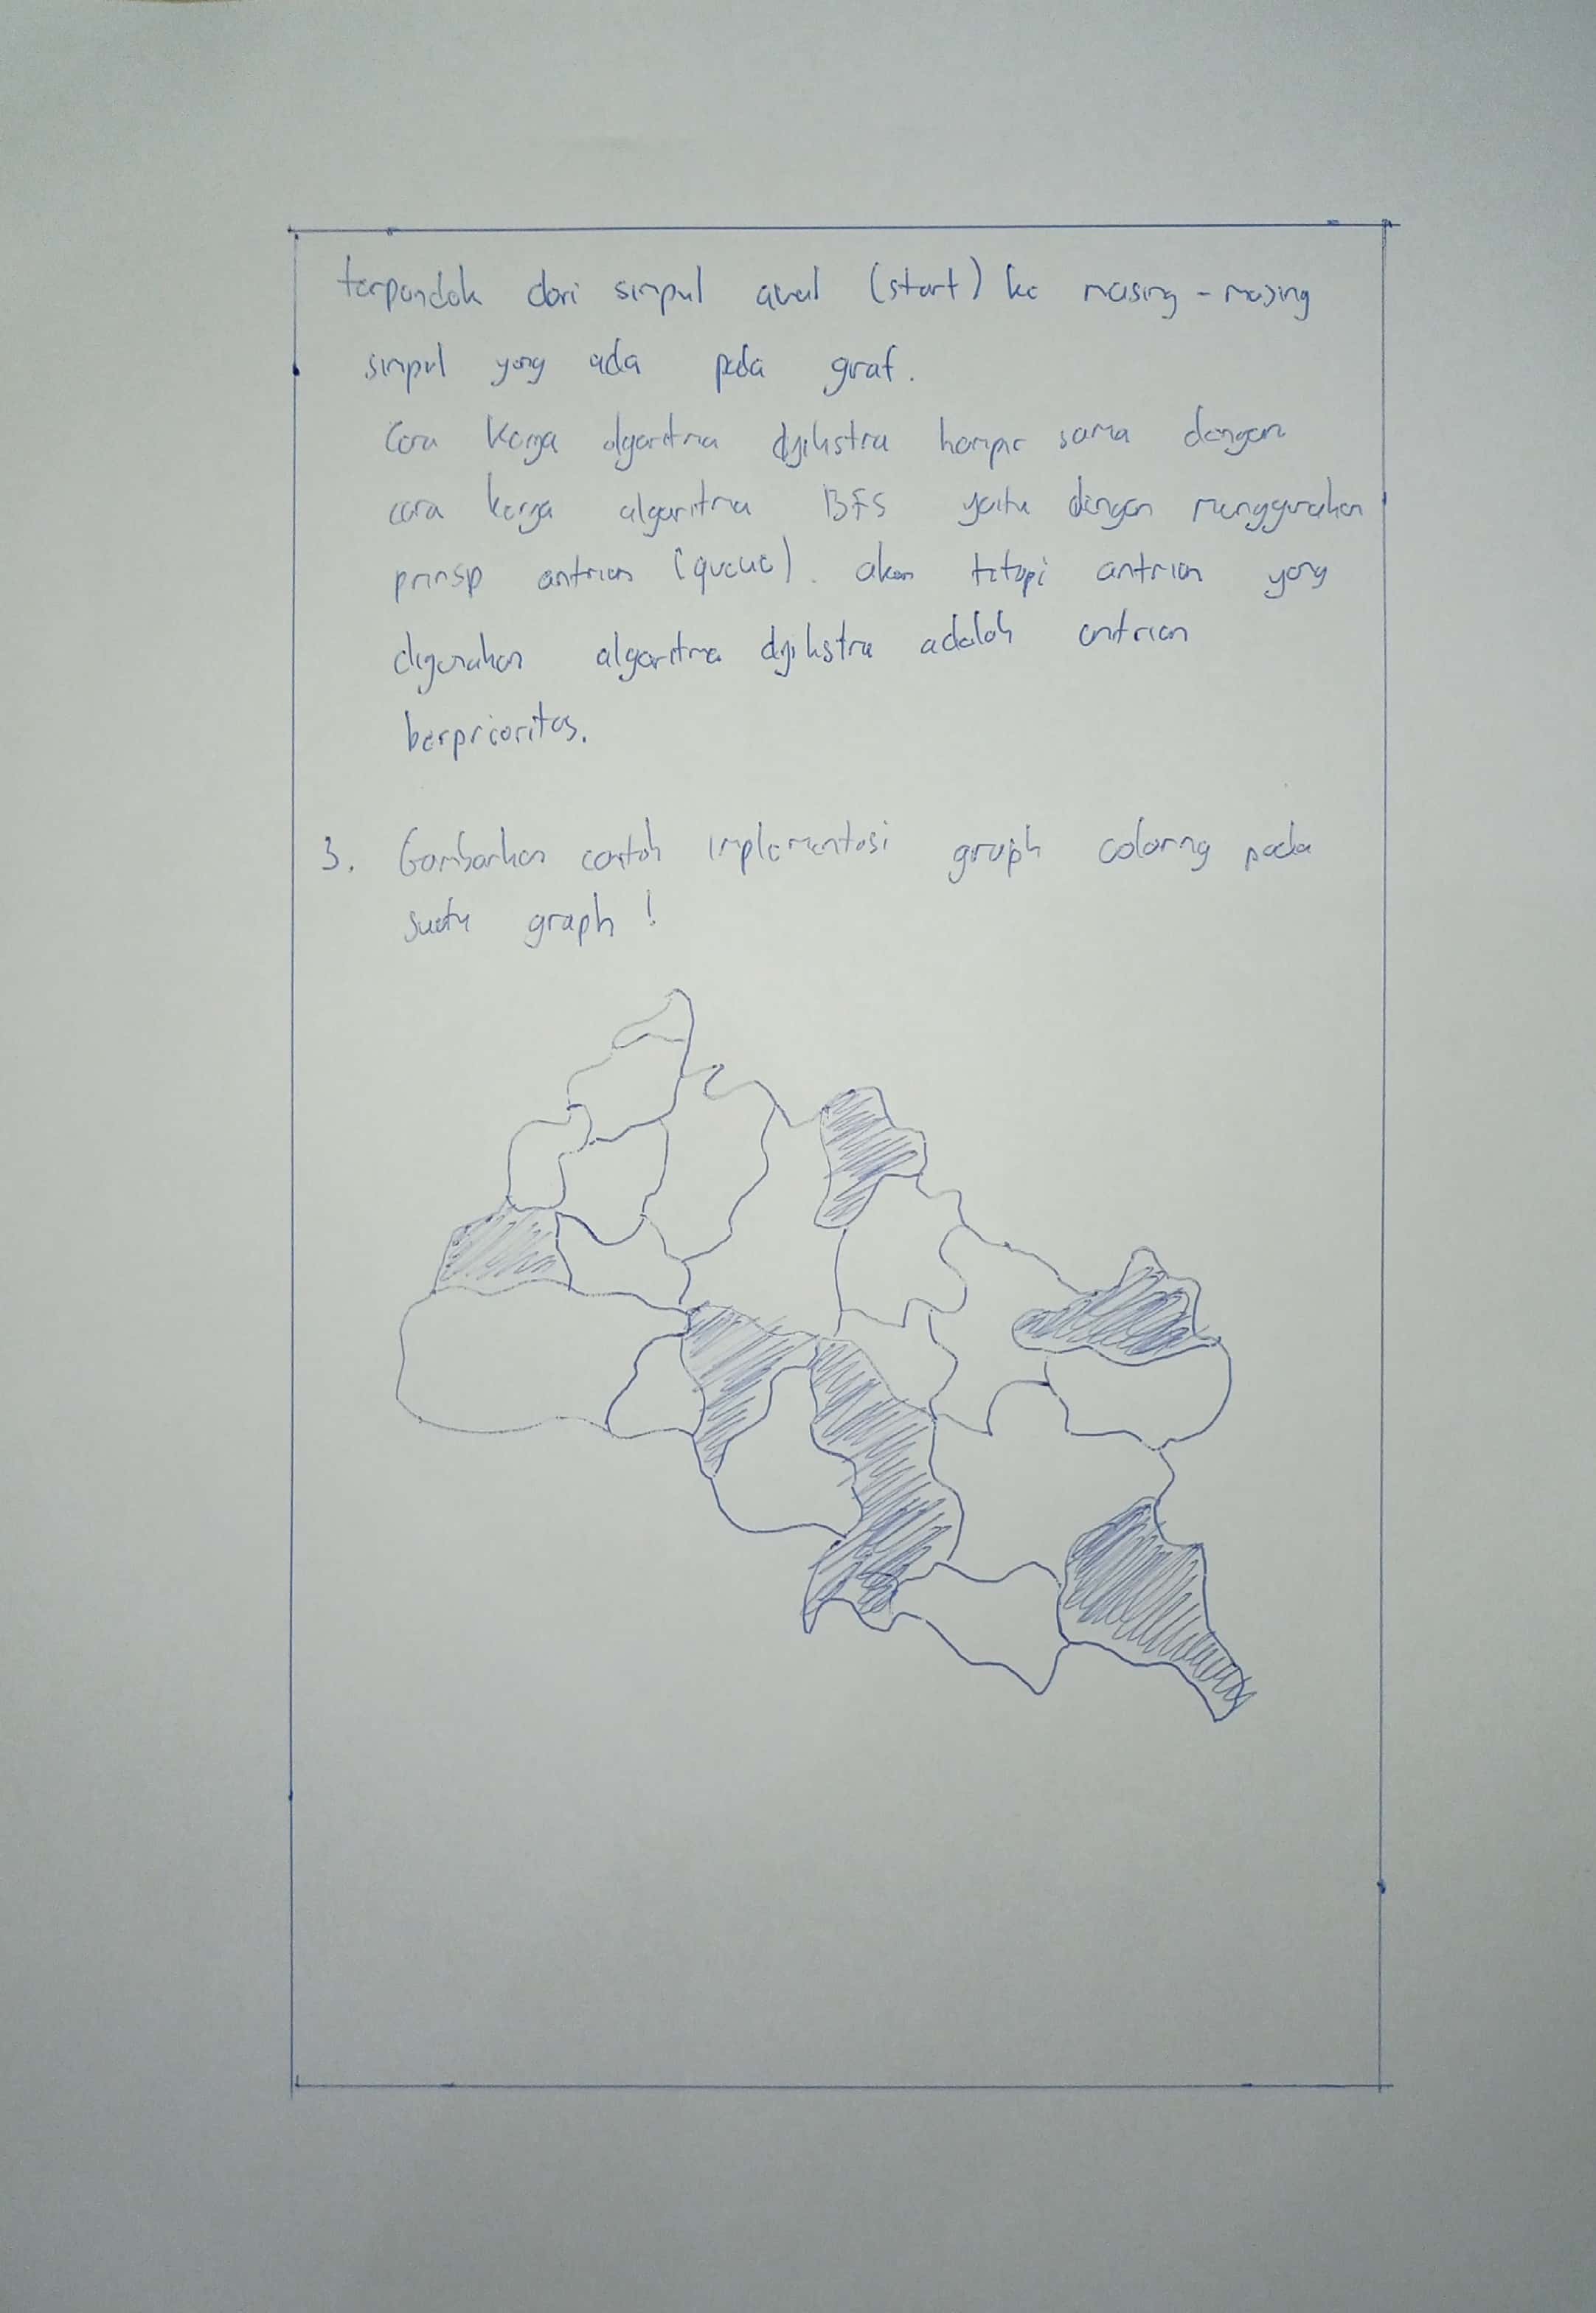 terpendek dari simpul awal (start) ke masing-masing
simpul yang ada pada graf.
Cara kerja algoritma dijikstra hampir sama dengan
cara kerja algoritma BFS yaitu dengan menggunakan
prinsip antrian (queue). akan tetapi antrian yang
digunakan algoritma dijikstra adalah antrian
berprioritas.
3. Gambarkan contoh implementasi graph coloring pada
suatu graph !